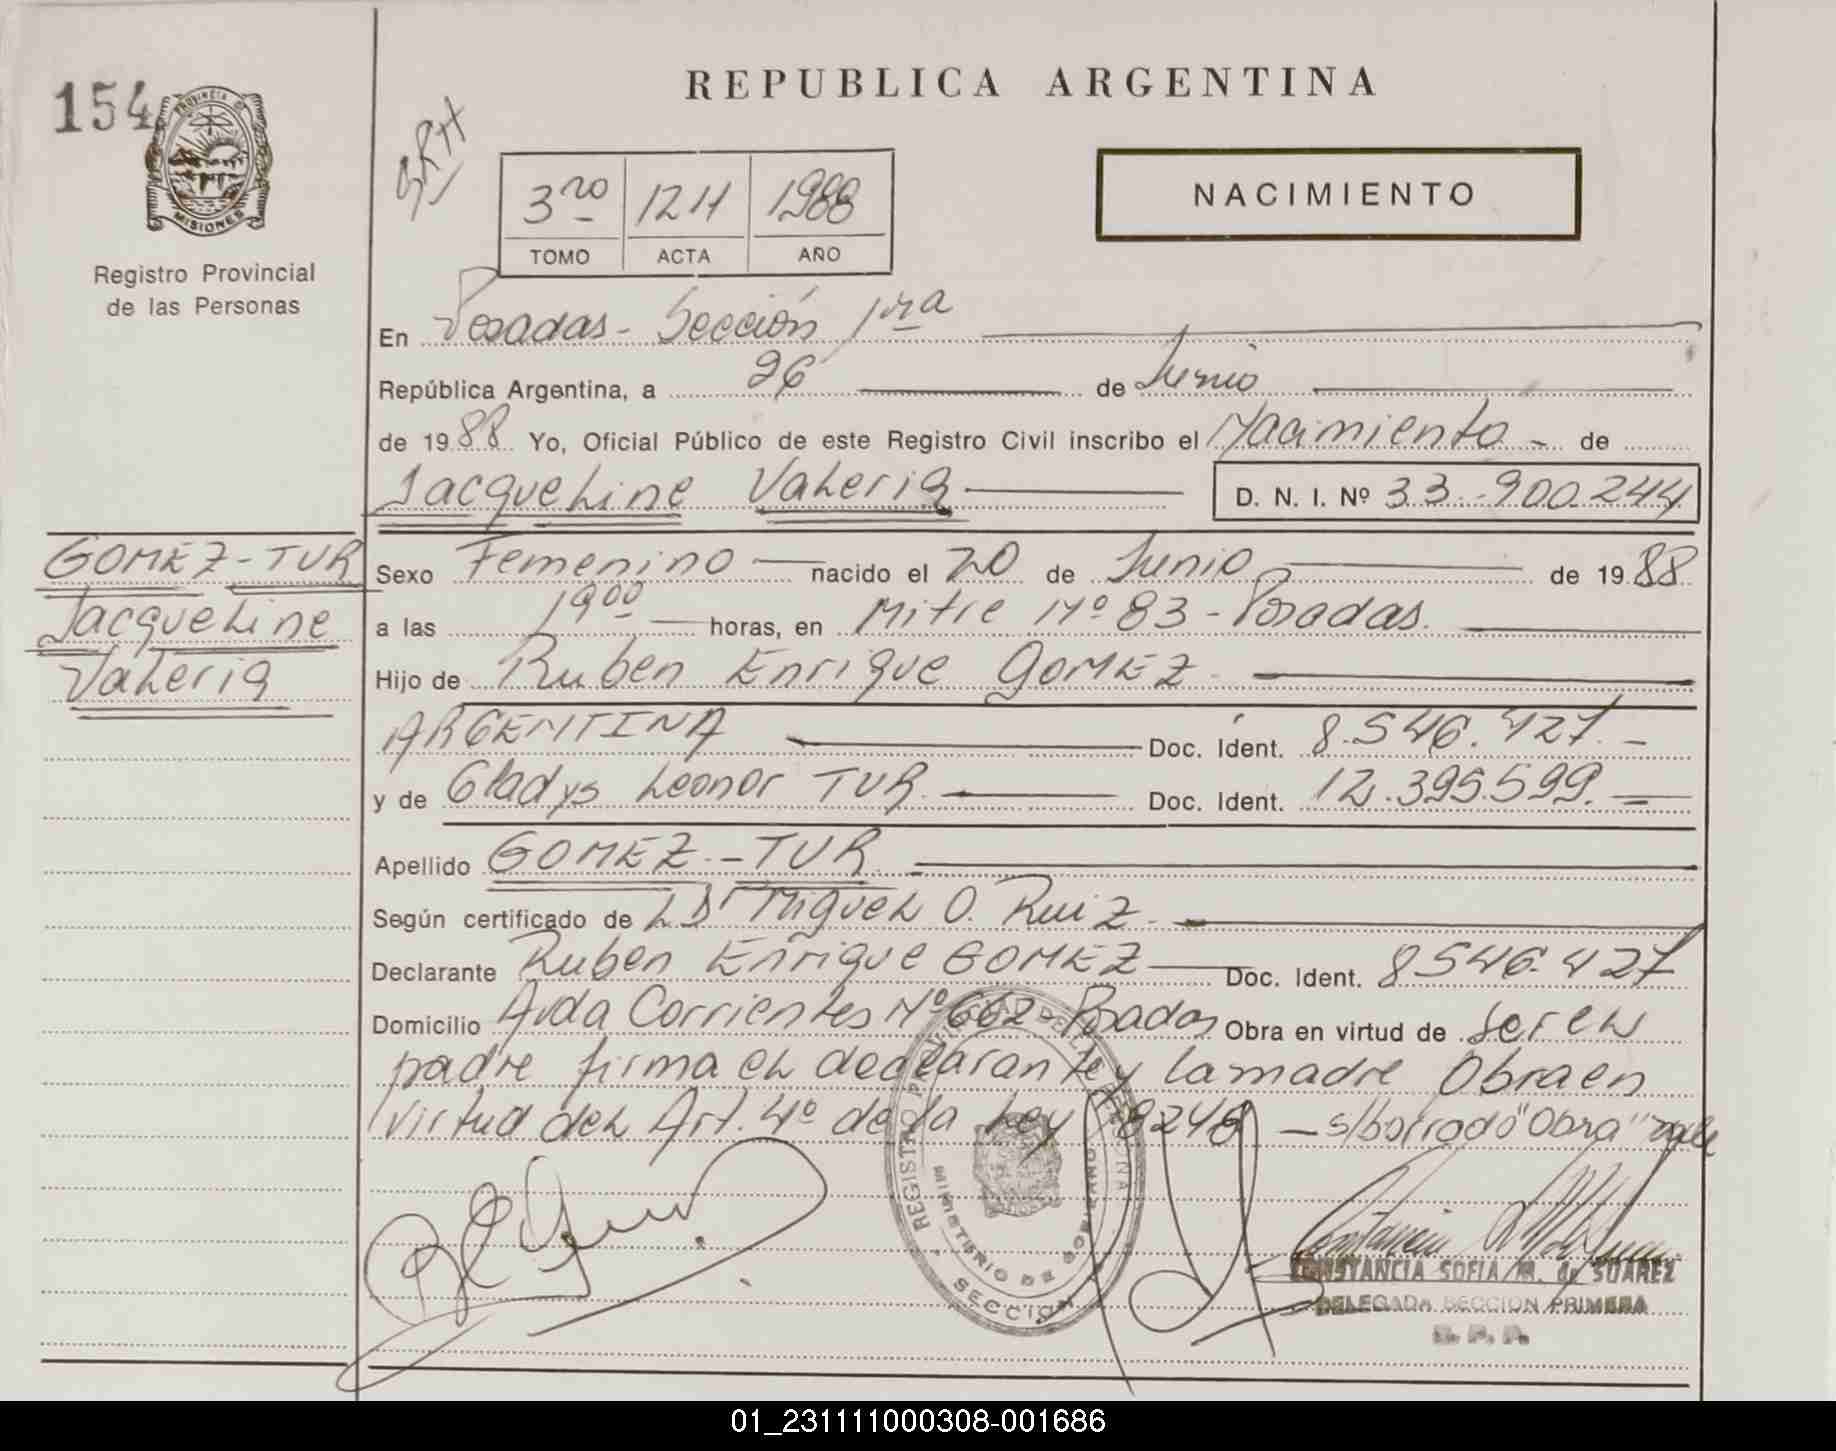 REPUBLICA ARGENTINA
154
PROVINCIA DE
MISIONES
Registro Provincial
de las Personas
3ro 1211 1988
TOMO ACTA AÑO
NACIMIENTO
En Posadas - Sección 1ra
República Argentina, a 26 de Junio
de 1988 Yo, Oficial Público de este Registro Civil inscribo el Nacimiento - de
Jacqueline Valeria D. N. I. Nº 33.900.244
GOMEZ - TUR
Jacqueline
Valeria
Sexo Femenino nacido el 20 de Junio de 1988
a las 1900 horas, en Mitre Nº 83 - Posadas.
Hijo de Ruben Enrique GOMEZ
ARGENTINA Doc. Ident. 8.546.427.-
y de Gladys Leonor TUR Doc. Ident. 12.395.599.
Apellido GOMEZ - TUR
Según certificado de Dr Miguel O. Ruiz
Declarante Ruben Enrique GOMEZ Doc. Ident. 8546.427
Domicilio Avda Corrientes Nº 662 - Posadas Obra en virtud de ser el
padre firma el declarante y la madre Obra en
virtud del Art. 4º de la Ley 18248 - s/borrado "Obra" vale
REGISTRO PROVINCIAL DE LAS PERSONAS
MINISTERIO DE GOBIERNO
SECCION
CONSTANCIA SOFIA M. de SUAREZ
DELEGADA SECCION PRIMERA
R. P. P.
01_231111000308-001686